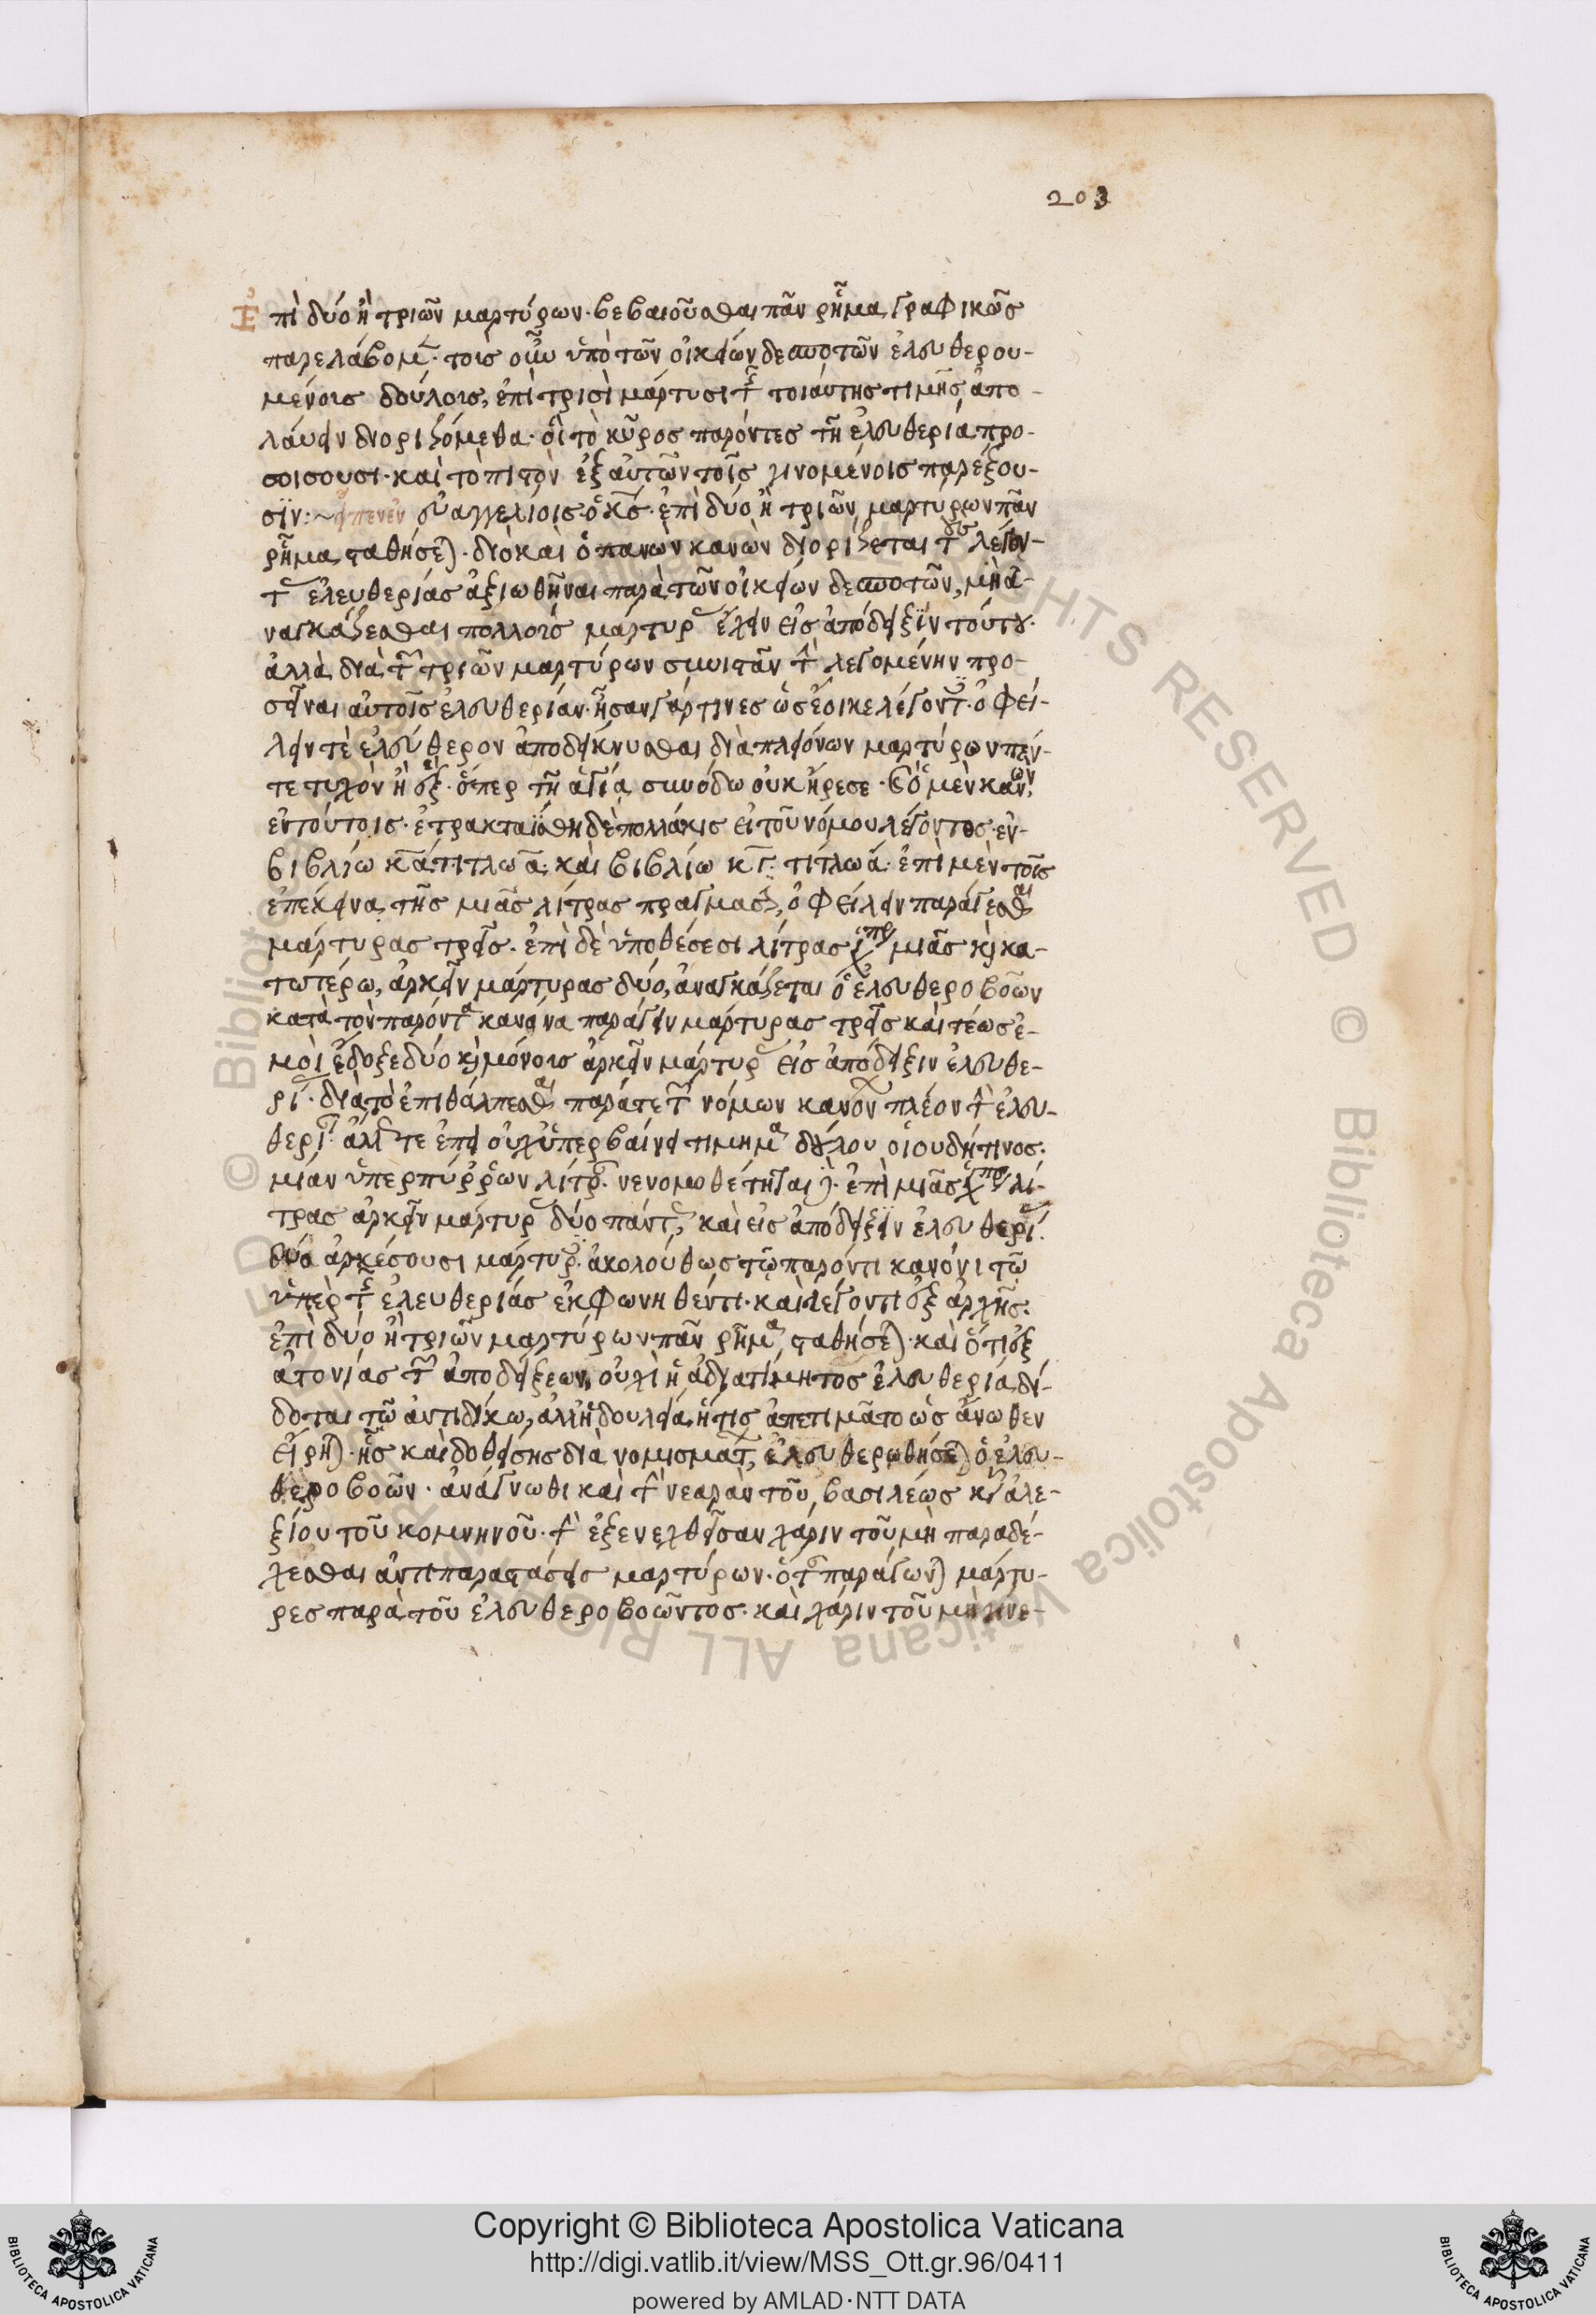 203
Ἐπὶ δύο ἢ τριῶν μαρτύρων· βεβαιοῦσθαι πᾶν ῥῆμα γραφικῶς
παρελάβομ· τοῖς οὖν ὑπὸ τῶν οἰκείων δεσποτῶν ἐλευθερου-
μένοις δούλοις, ἐπὶ τρισὶ μάρτυσι τῆς τοιαύτης τιμῆς ἀπο-
λαύειν διοριζόμεθα· οἳ τὸ κῦρος παρόντες τῇ ἐλευθερία προ-
σοίσουσι· καὶ τὸ πιστὸν ἐξ αὐτῶν τοῖς γινομένοις παρέξου-
σιν:~ εἶπεν ἐν εὐαγγελίοις ὁ κς· ἐπὶ δύο ἢ τριῶν μαρτύρων πᾶν
ῥῆμα σταθήσεται· διὸ καὶ ὁ παρὼν κανὼν διορίζεται τοὺς λέγον-
τας ἐλευθερίας ἀξιωθῆναι παρὰ τῶν οἰκείων δεσποτῶν, μὴ ἀ-
ναγκάζεσθαι πολλοὺς μάρτυρας ἔχειν εἰς ἀπόδειξιν τούτου·
ἀλλὰ διὰ τῶν τριῶν μαρτύρων συνιστᾶν τὴν λεγομένην προ-
σεῖναι αὐτοῖς ἐλευθερίαν· ἦσαν γάρ τινες ὡς ἔοικε λέγοντες· ὀφεί-
λειν τὸ ἐλεύθερον ἀποδείκνυσθαι διὰ πλειόνων μαρτύρων πέν-
τε τυχὸν ἢ ἓξ· ὅπερ τῇ ἁγία συνόδω οὐκ ἤρεσε· ὁ μὲν κανὼν
ἐν τούτοις· ἐτρακταΐσθη δὲ πολλάκις εἰ τοῦ νόμου λέγοντος ἐν
βιβλίω κα τίτλω α· καὶ βιβλίω κγ· τίτλω α· ἐπὶ μὲν τοῖς
ἐπέκεινα τῆς μιᾶς λίτρας πράγμασιν, ὀφείλειν παράγεσθαι
μάρτυρας τρεῖς· ἐπὶ δὲ ὑποθέσεσι λίτρας μιᾶς καὶ κα-
τωτέρω, ἀρκεῖν μάρτυρας δύο, ἀναγκάζεται ὁ ἐλευθεροβοῶν
κατὰ τὸν παρόντα κανόνα παράγειν μάρτυρας τρεῖς καὶ τέως ἐ-
μοὶ ἔδοξε δύο καὶ μόνους ἀρκεῖν μάρτυρας εἰς ἀπόδειξιν ἐλευθε-
ρίας· διὰ τὸ ἐπιθάλπεσθαι παρά τε τῶν νόμων κανόνων πλέον τὴν ἐλευ-
θερίαν· ἄλλως τε ἐπεὶ οὐχ ὑπερβαίνει τίμημα δούλου οἱουδήτινος·
μίαν ὑπερπύρρων λίτραν· νενομοθέτηται· ἐπὶ μιᾶς λί-
τρας ἀρκεῖν μάρτυρας δύο πάντως, καὶ εἰς ἀπόδειξιν ἐλευθερίας
δύο ἀρκέσουσι μάρτυρες· ἀκολούθως τῷ παρόντι κανόνι τῷ
ὑπὲρ τῆς ἐλευθερίας ἐκφωνηθέντι· καὶ λέγοντι ἐξ ἀρχῆς·
ἐπὶ δύο ἢ τριῶν μαρτύρων πᾶν ῥῆμα σταθήσεται· καὶ ὅτι ἐξ
ἀτονίας τῶν ἀποδείξεων, οὐχὶ ἡ ἀδιατίμητος ἐλευθερία δί-
δοται τῷ ἀντιδίκω, ἀλλ' ἡ δουλεία, ἥτις ἀπετιμᾶτο ὡς ἄνωθεν
εἴρηται· ἧς καὶ δοθείσης διὰ νομισμάτων, ἐλευθερωθήσεται ὁ ἐλευ-
θεροβοῶν· ἀνάγνωθι καὶ τὴν νεαρὰν τοῦ βασιλέως κυροῦ ἀλε-
ξίου τοῦ κομνηνοῦ· τὴν ἐξενεχθεῖσαν χάριν τοῦ μὴ παραδέ-
χεσθαι ἀντιπαραστάσεις μαρτύρων· ὅτε παράγωνται μάρτυ-
ρες παρὰ τοῦ ἐλευθεροβοῶντος· καὶ χάριν τοῦ μὴ γίνε-
Copyright © Biblioteca Apostolica Vaticana
http://digi.vatlib.it/view/MSS_Ott.gr.96/0411
powered by AMLAD·NTT DATA